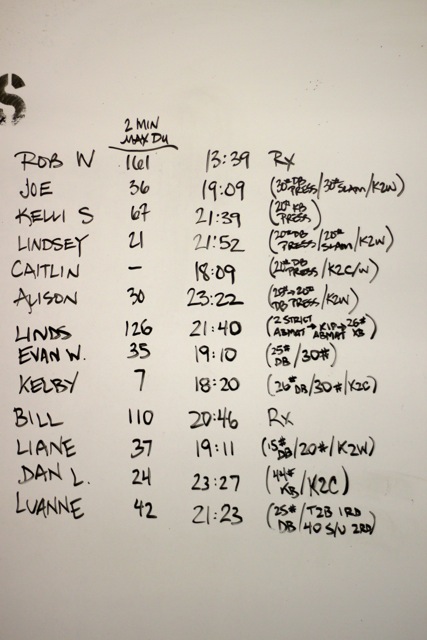 S
2 MIN
MAX DU
ROB W 161 13:39 Rx
JOE 36 19:09 (30# DB PRESS/30# SLAM/K2W)
KELLI S 67 21:39 (20# KB PRESS)
LINDSEY 21 21:52 (20# DB PRESS/20# SLAM/K2W)
CAITLIN – 18:09 (20# DB PRESS/K2C/W)
ALISON 30 23:22 (25#→20# DB PRESS/K2W)
LINDS 126 21:40 (2 STRICT ABMAT → KIP → ABMAT 26# KB)
EVAN W. 35 19:10 (25# DB/30#)
KELBY 7 18:20 (26# DB/30#/K2C)
BILL 110 20:46 Rx
LIANE 37 19:11 (15# DB/20#/K2W)
DAN L. 24 23:27 (44# KB/K2C)
LUANNE 42 21:23 (25# DB/T2B 1RD 40 S/U 2RD)